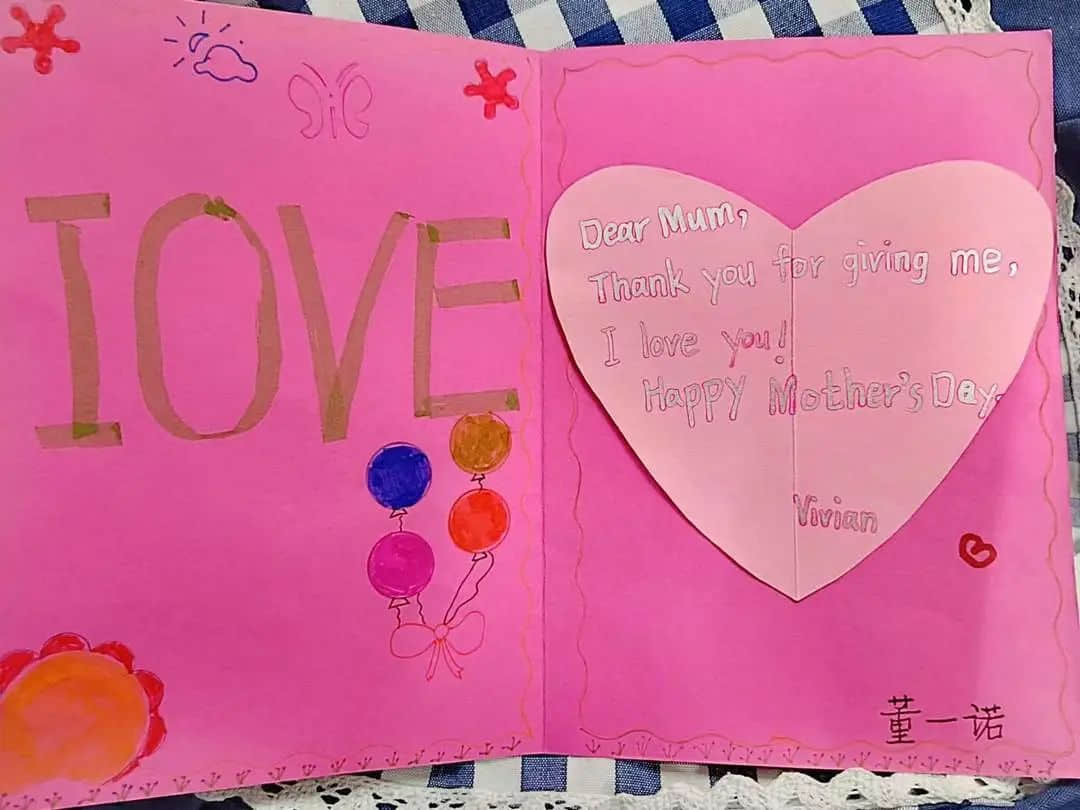 IOVE
Dear Mum,
Thank you for giving me,
I love you!
Happy Mother's Day.
Vivian
董一诺